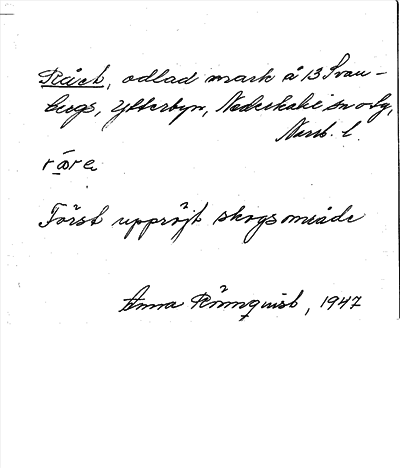 Röjet, odlad mark å 13 Svan-
bergs, Ytterbyn, Nederkalix sn o lg,
Norrb. l.
Först uppröjt skogsområde
Anna Rönnquist, 1947